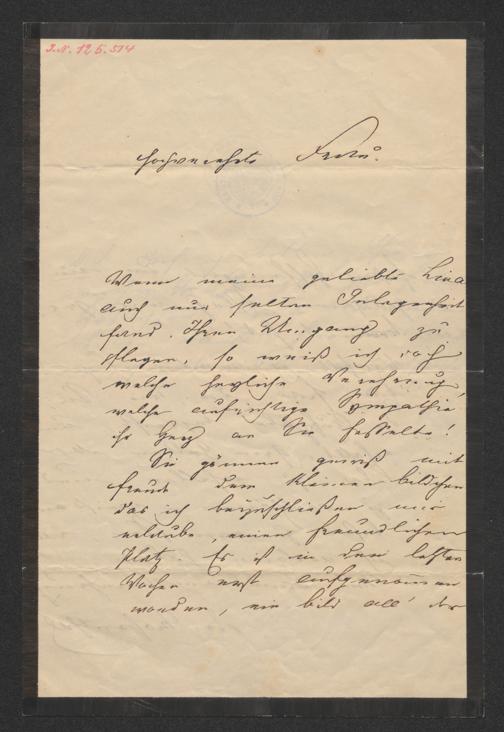 J.N. 125.514
Hochverehrte Frau!
Wenn meine geliebte Lina
auch nur selten Gelegenheit
fand, Ihren Umgang zu
pflegen, so weiß ich doch
welche herzliche Verehrung,
welche aufrichtige Sympathie
ihr Herz an Sie fesselte!
Sie gönnen gewiß mit
Freude dem kleinen Bildchen
das ich beizuschließen mir
erlaube, einen freundlichen
Platz. Es ist in den letzten
Wochen erst aufgenommen
worden, ein Bild all' der